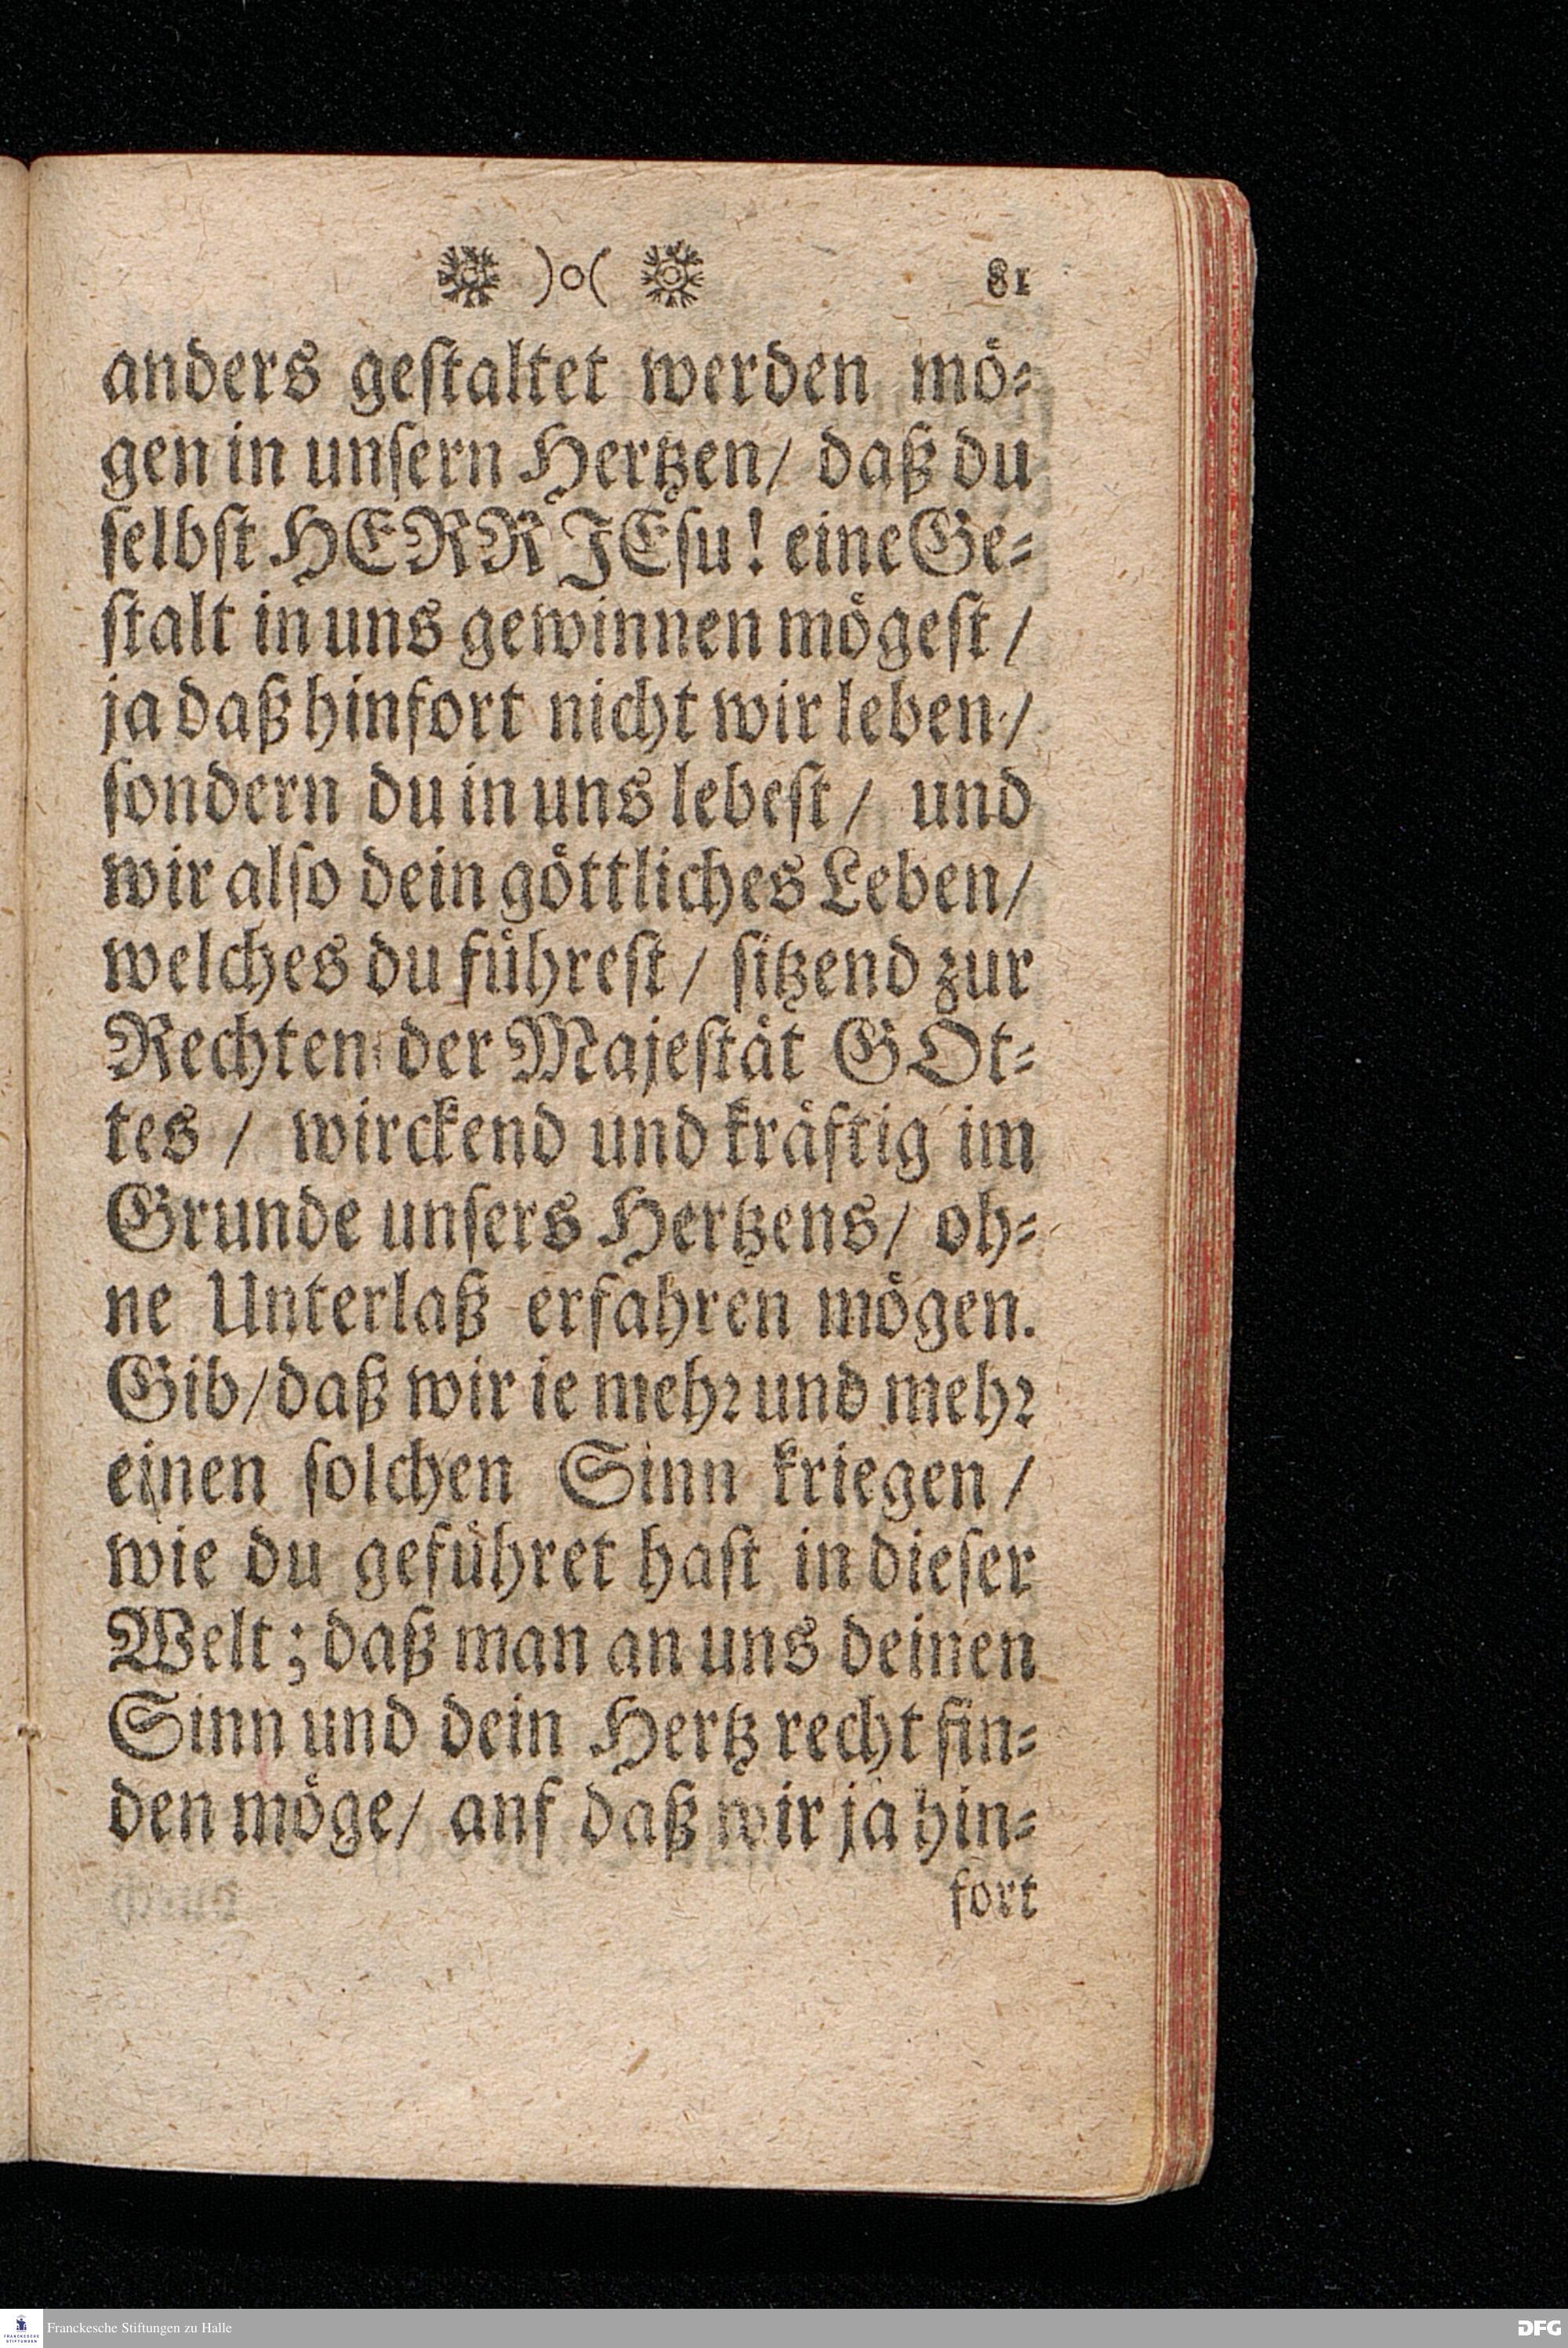 )o( 81
anders geſtaltet werden moͤ⸗
gen in unſern Hertzen/ daß du
ſelbſt HERR JEſu! eine Ge⸗
ſtalt in uns gewinnen moͤgeſt /
ja daß hinfort nicht wir leben /
ſondern du in uns lebeſt / und
wir alſo dein goͤttliches Leben/
welches du fuͤhreſt / ſitzend zur
Rechten der Majeſtaͤt GOt⸗
tes / wirckend und kraͤftig im
Grunde unſers Hertzens/ oh⸗
ne Unterlaß erfahren moͤgen.
Gib/daß wir ie mehꝛ und mehꝛ
einen ſolchen Sinn kriegen /
wie du gefuͤhret haſt in dieſer
Welt; daß man an uns deinen
Sinn und dein Hertz recht fin⸗
den moͤge/ anf daß wir ja hin⸗
fort
FRANCKESCHE
STIFTUNGEN
Franckesche Stiftungen zu Halle
DFG